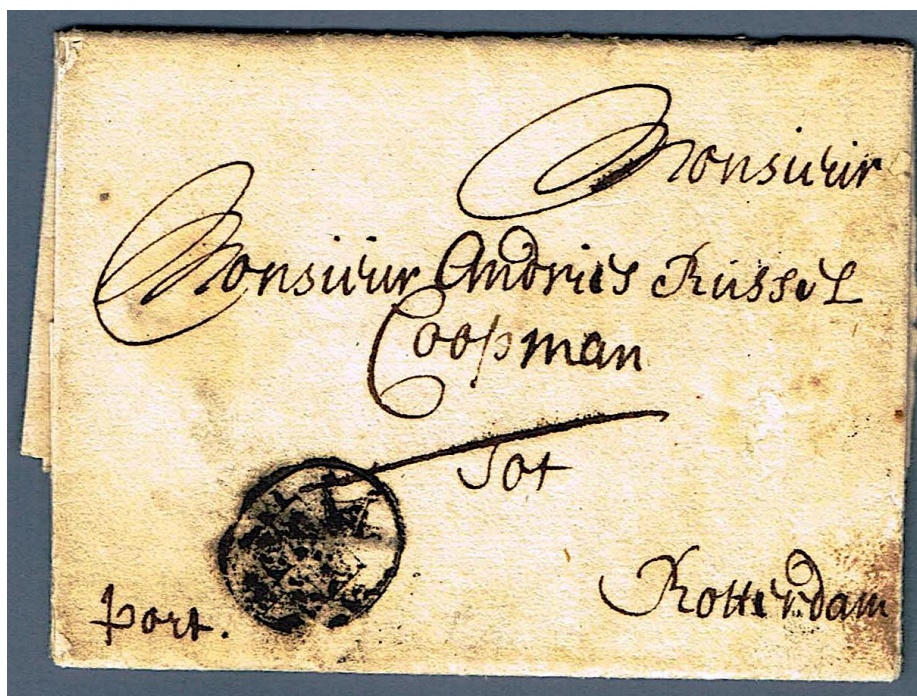 Monsieur
Monsieur Andries Russel
Coopman
Tot
Rotterdam
port.